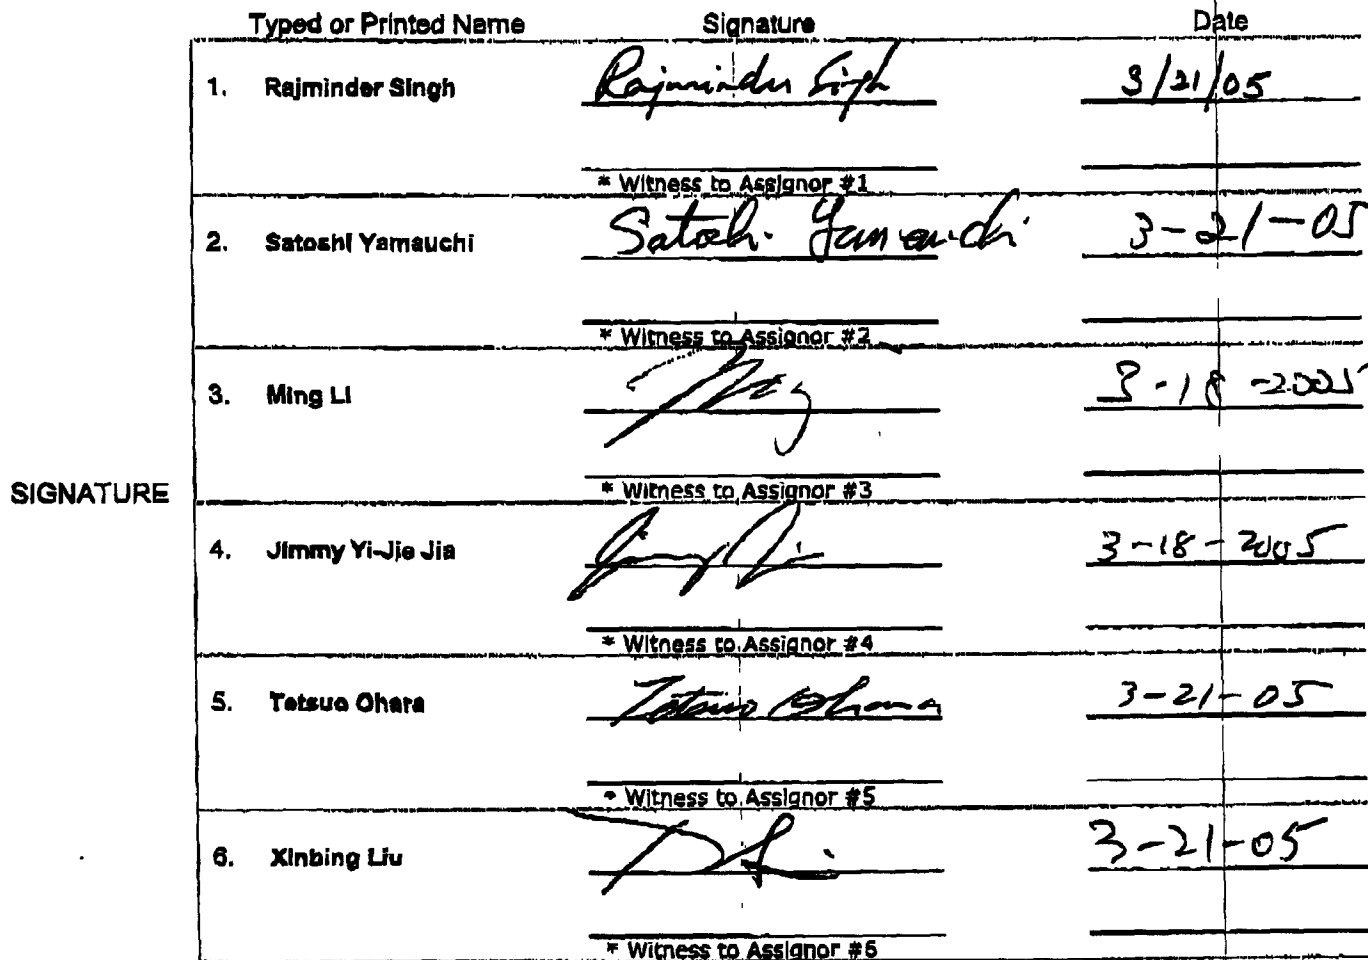 Typed or Printed Name Signature Date
1. Rajminder Singh Rajminder Singh 3/21/05
* Witness to Assignor #1
2. Satoshi Yamauchi Satoshi Yamauchi 3-21-05
* Witness to Assignor #2
3. Ming Li Ming 3-18-2005
SIGNATURE
* Witness to Assignor #3
4. Jimmy Yi-Jie Jia Jimmy Jia 3-18-2005
* Witness to Assignor #4
5. Tetsuo Ohara Tetsuo Ohara 3-21-05
* Witness to Assignor #5
6. Xinbing Liu 3-21-05
* Witness to Assignor #6